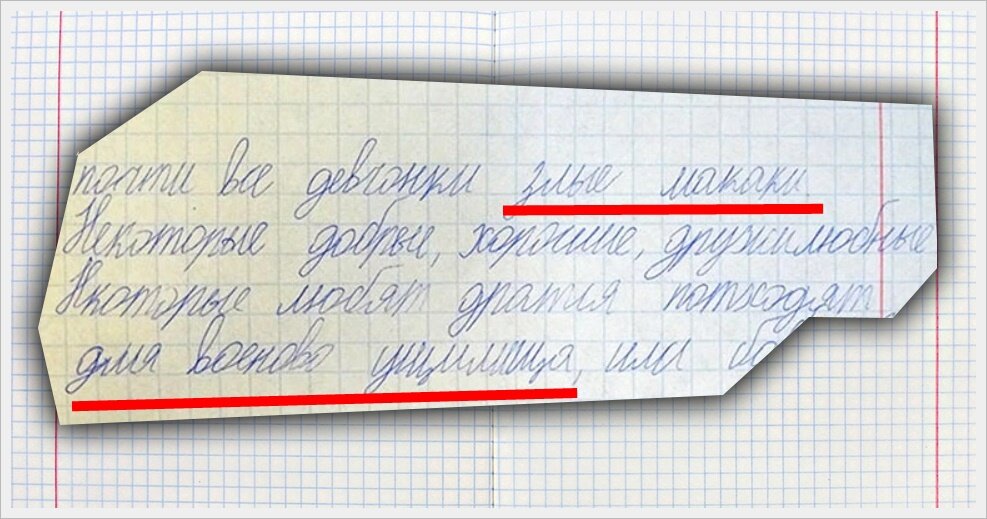 почти все девчонки злые макаки.
Некоторые добрые, хорошие, дружилюбные
Нкоторые любят дратся потходят
для военово учцилища, или